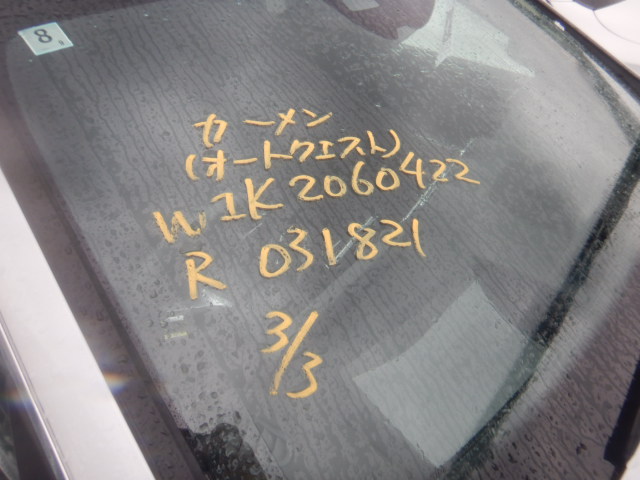 8
カーメン
(オートクエスト)
W1K2060422
R 031821
3/3